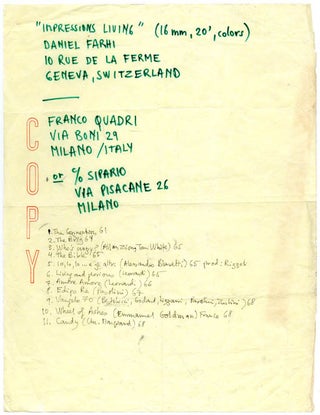 "IMPRESSIONS LIVING" (16 mm, 20', colors)
DANIEL FARHI
10 RUE DE LA FERME
GENEVA, SWITZERLAND
COPY
FRANCO QUADRI
VIA BONI 29
MILANO / ITALY
or c/o SIPARIO
VIA PISACANE 26
MILANO
1. The 61
2. The 64
3. Who's (Allan Zion, Tom White) 65
4. The Bible 65
5. e gli altri (Alessandro ) 65 prod:
6. Living and glorious (Leonardi) 65
7. Amore Amore (Leonardi) 66
8. Edipo Re (Pasolini) 67
9. Vangelo 70 ( , Godard, Lizzani, , ) 68
10. Wheel of Ashes (Emmanuel Goldman) France 68
11. Candy (Chr. Marquand) 68